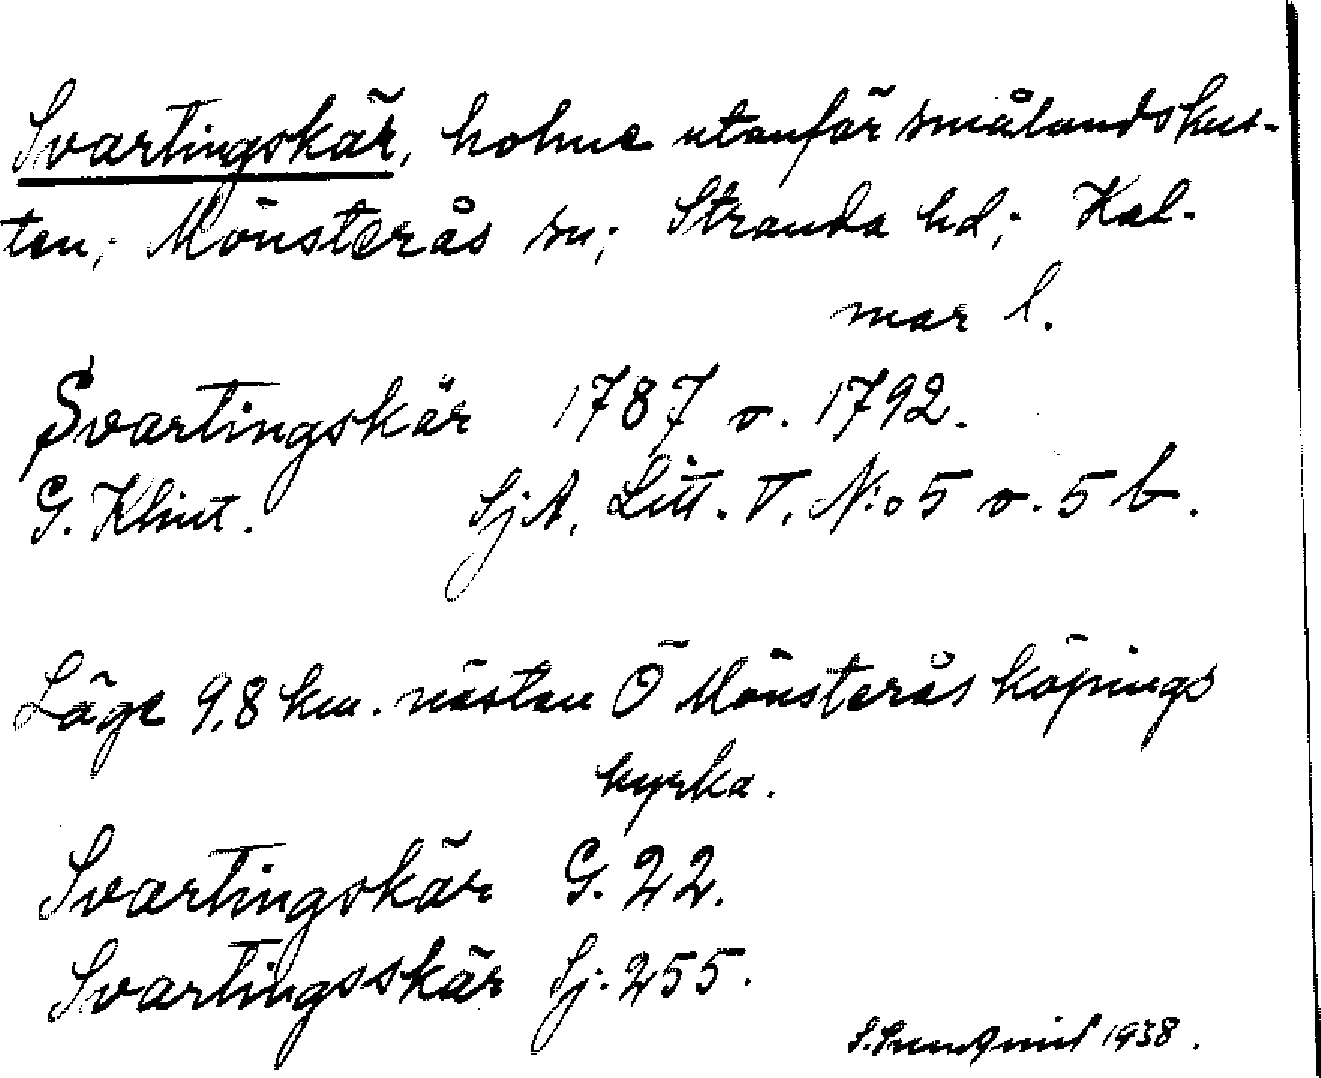 Svartingskär, holme utanför smålandskus-
ten; Mönsterås sn; Stranda hd; Kal-
mar l.
Svartingskär 1787 o. 1792.
G. Klint. SjA. Litt. T. N:o 5 o. 5 b.
Läge 9,8 km. nästan Ö Mönsterås köpings
kyrka.
Svartingskär G. 22.
Svartingsskär Sj. 255.
1938.